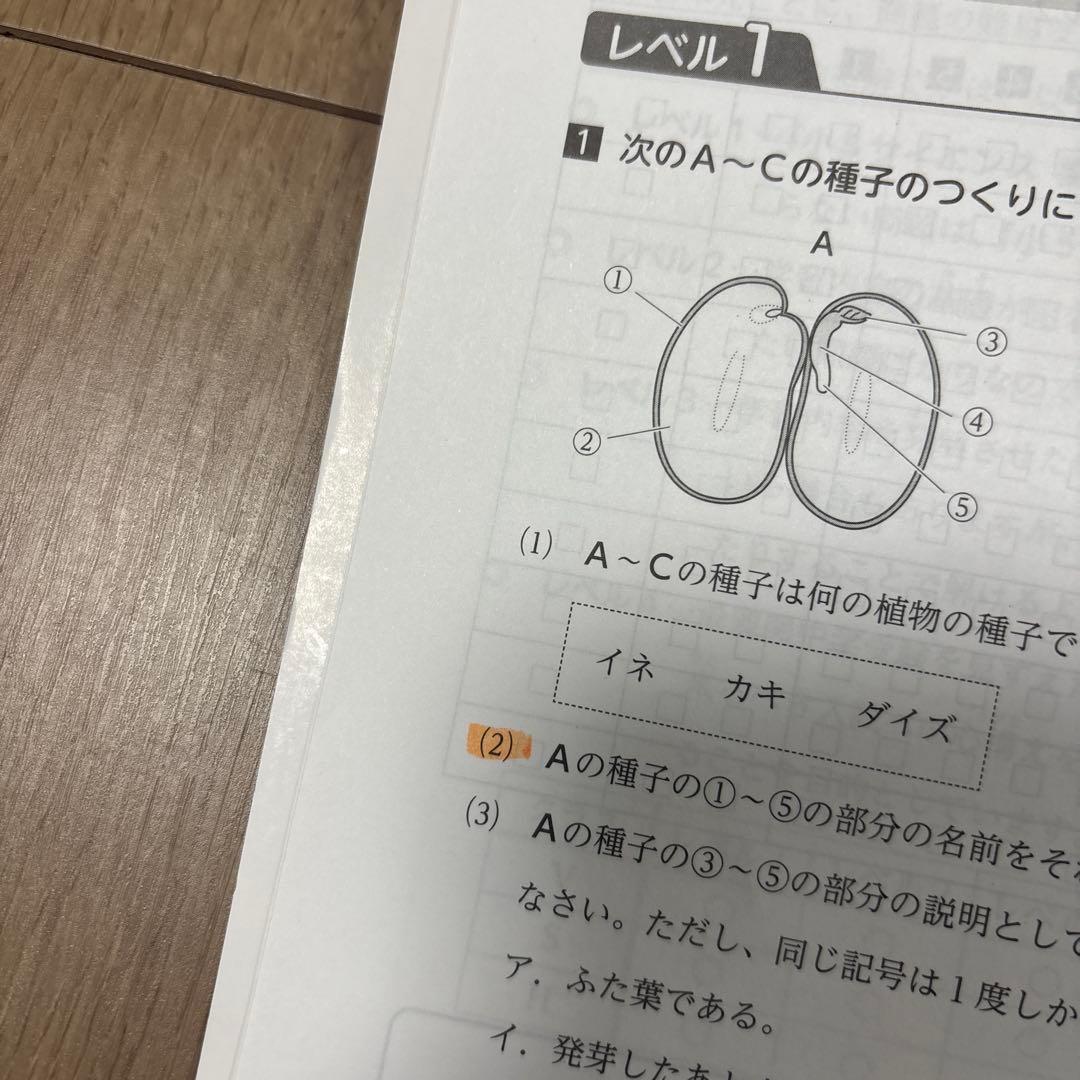 レベル1
1 次のA～Cの種子のつくりに
A
①
②
③
④
⑤
(1) A～Cの種子は何の植物の種子で
イネ カキ ダイズ
(2) Aの種子の①～⑤の部分の名前をそれ
(3) Aの種子の③～⑤の部分の説明として
なさい。ただし、同じ記号は1度しか
ア．ふた葉である。
イ．発芽したあと